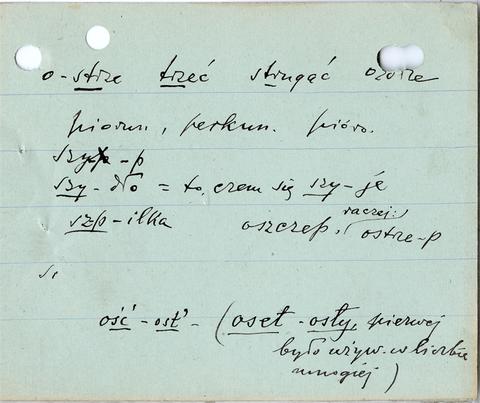 o-strze trzeć strugać
piorun, perkun. pióro.
szyp-p
szy-dło = to, czem się szy-je
szp-ilka oszczep, (raczej:) ostrze-p
ość - ost' - (oset - osty, pierwej
było używ. w liczbie
mnogiej)